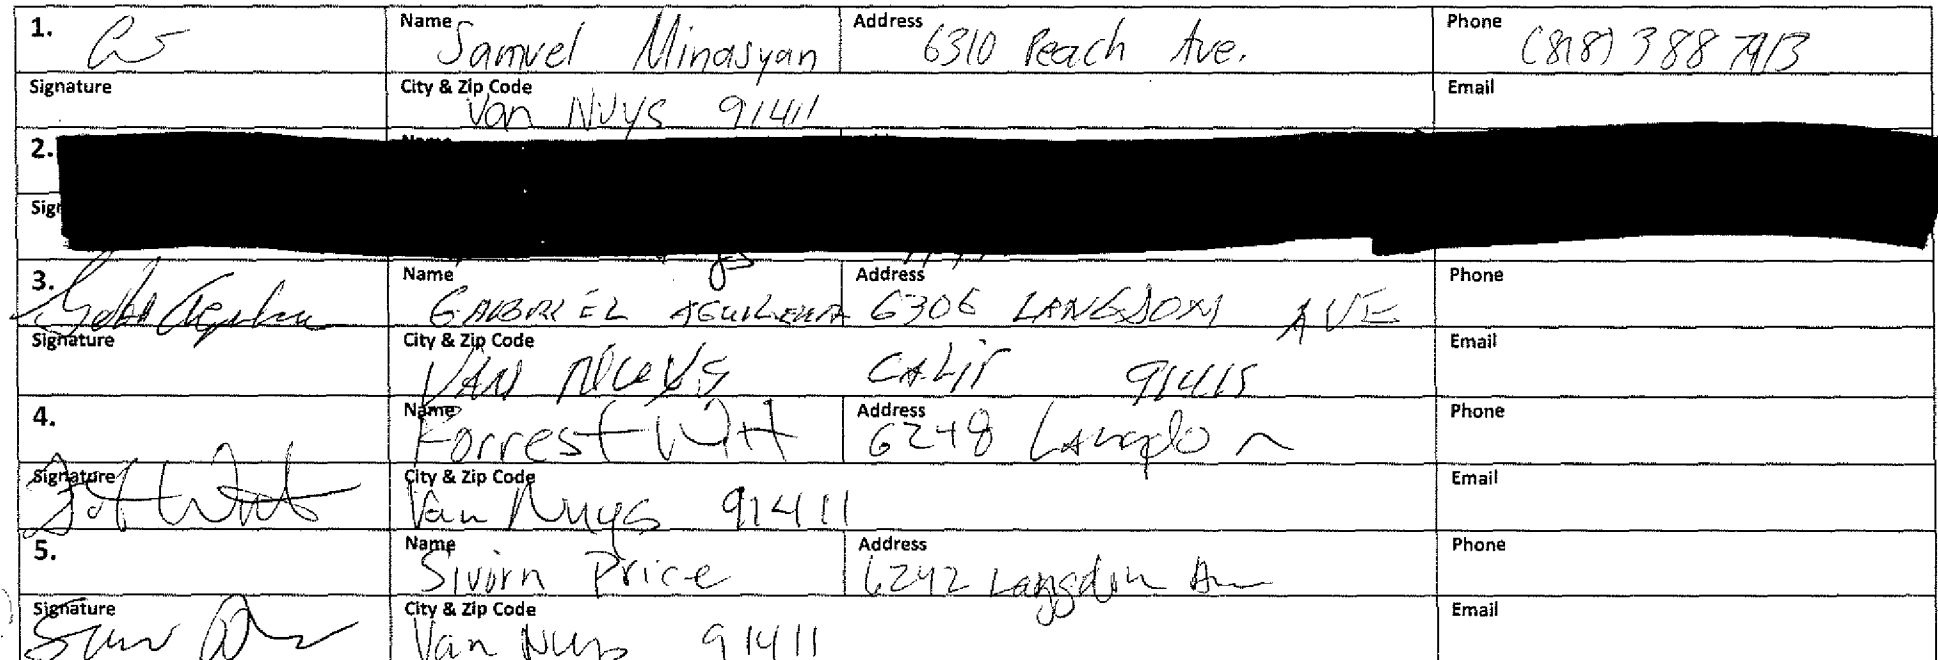 1. Name Samvel Minasyan Address 6310 Peach Ave. Phone (818) 388 7913
Signature City & Zip Code Van Nuys 91411 Email
2.
3. Name GABRIEL AGUILERA Address 6306 LANGDON AVE Phone
Signature City & Zip Code VAN NUYS CALIF 91415 Email
4. Name Forrest Witt Address 6248 Langdon Phone
Signature City & Zip Code Van Nuys 91411 Email
5. Name Sivorn Price Address 6242 Langdon Phone
Signature City & Zip Code Van Nuys 91411 Email